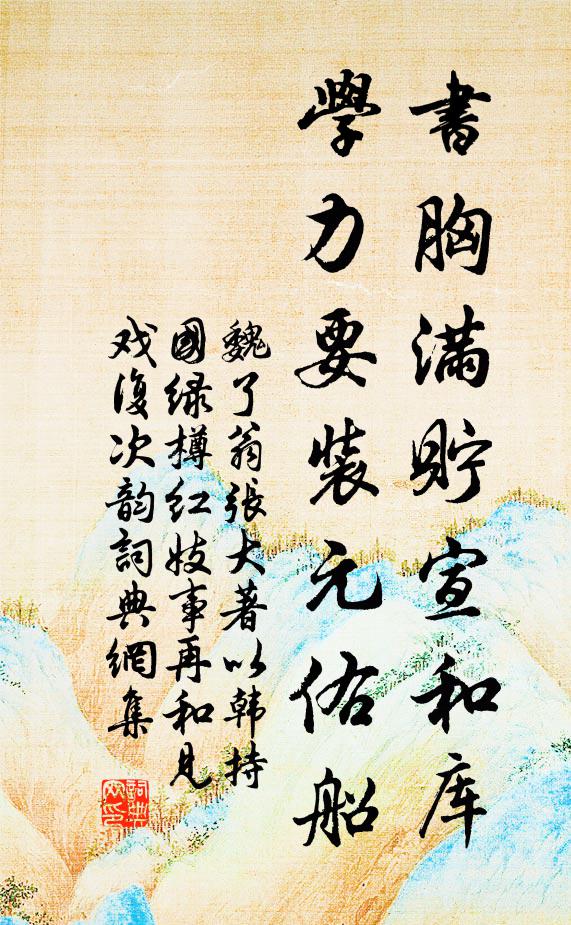 書胸滿貯宣和库
學力要裝元佑船
魏了翁張大著以韩持
國绿樽红妓事再和見
戏復次韵詞典網集